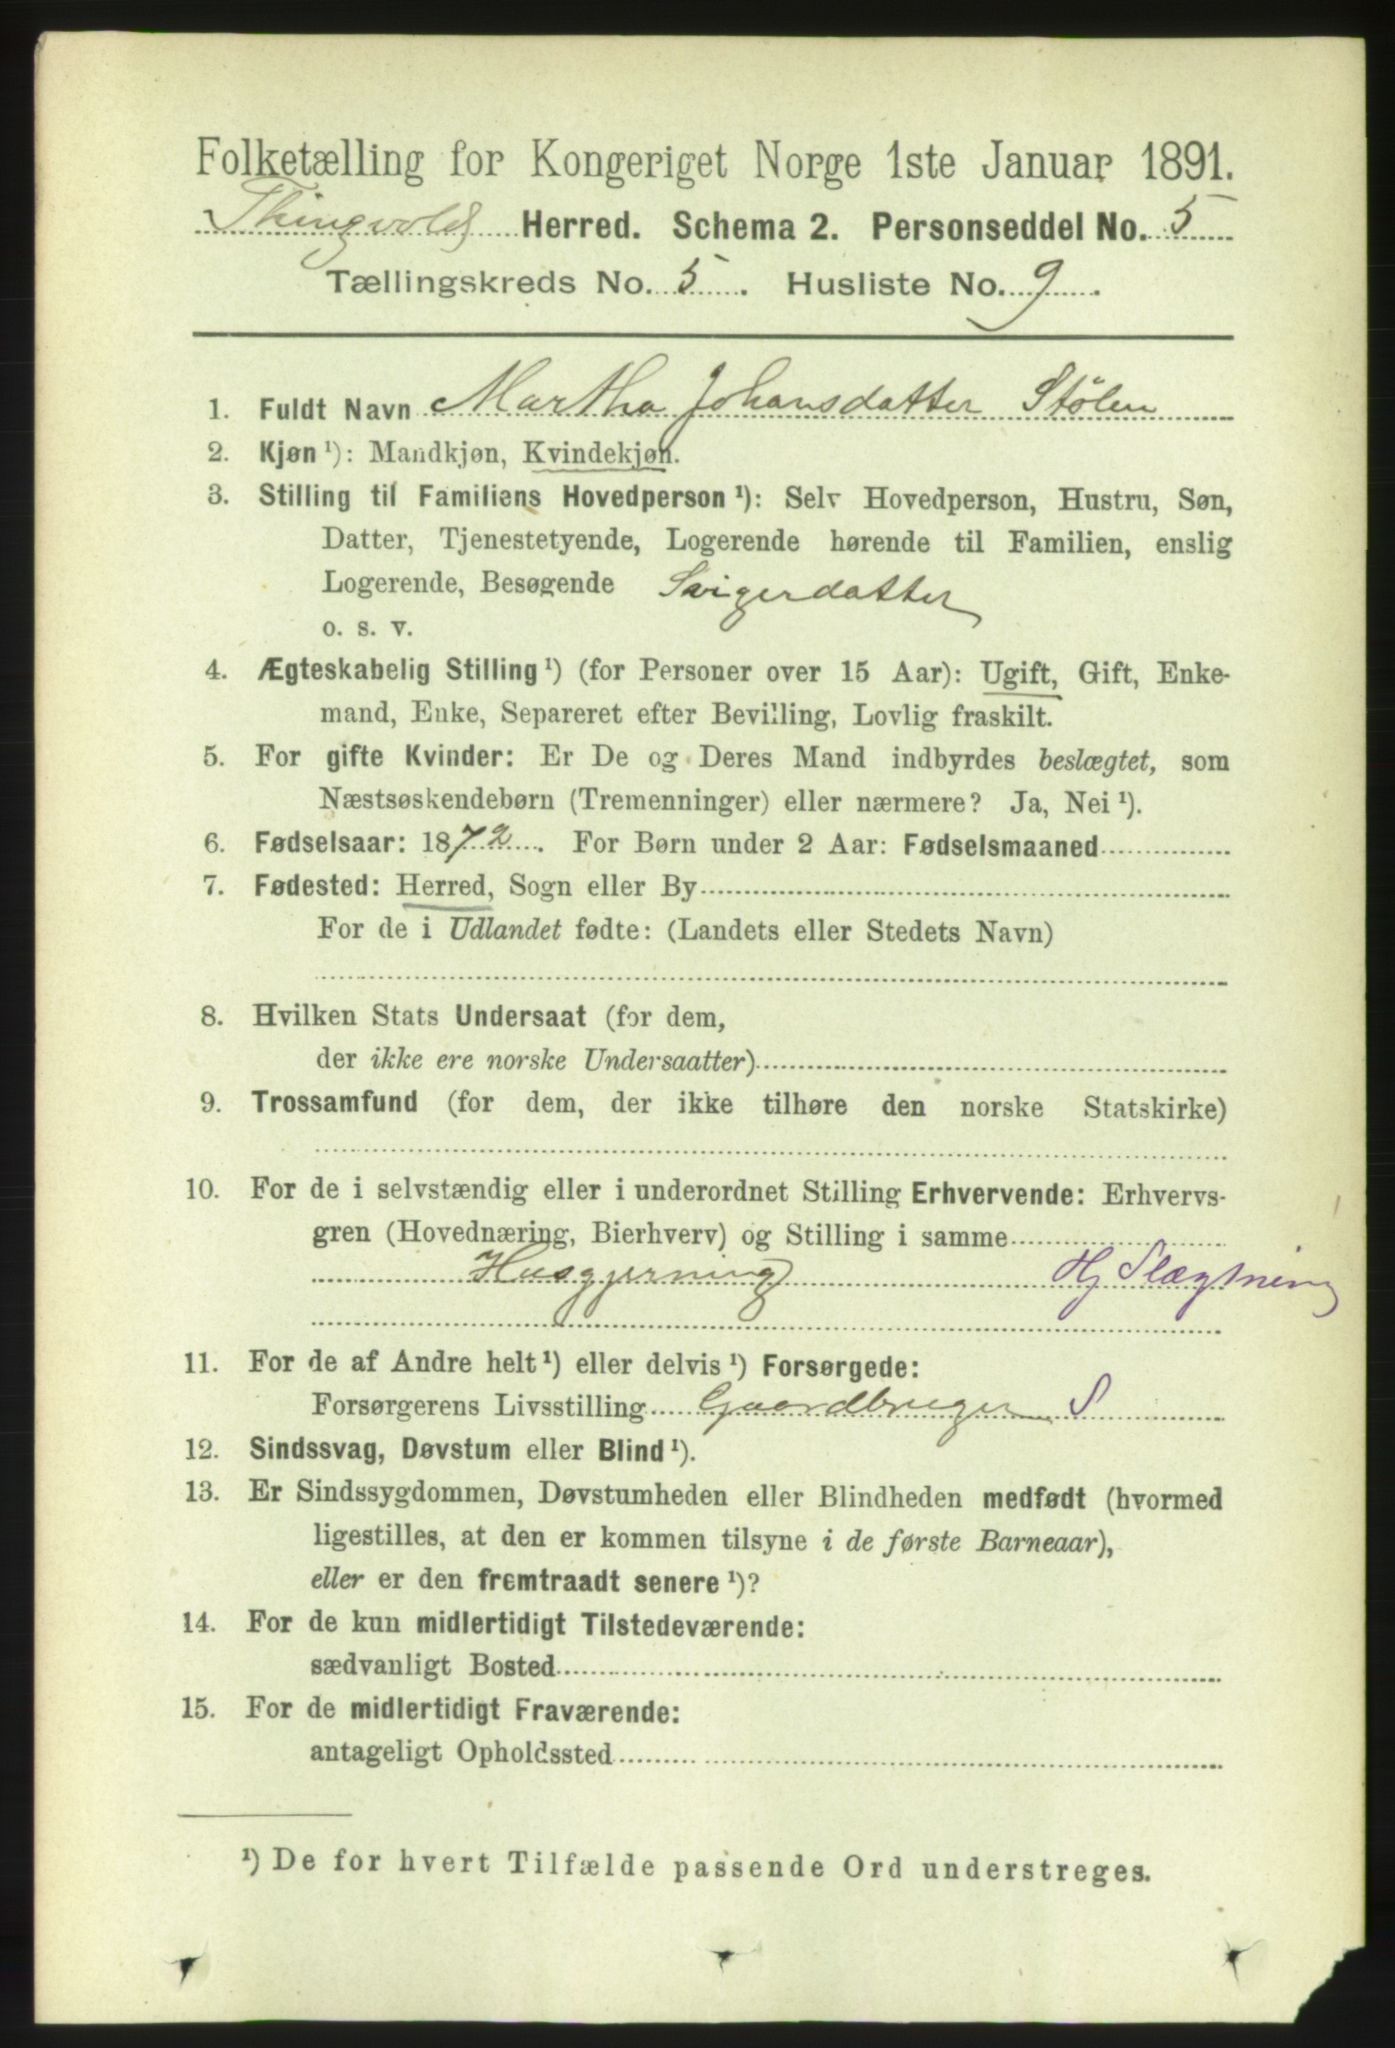 Folketælling for Kongeriget Norge 1ste Januar 1891.
Thingvold Herred. Schema 2. Personseddel No. 5
Tællingskreds No. 5. Husliste No. 9.
1. Fuldt Navn Martha Johansdatter Stølen
2. Kjøn ¹): Mandkjøn, Kvindekjøn.
3. Stilling til Familiens Hovedperson ¹): Selv Hovedperson, Hustru, Søn,
Datter, Tjenestetyende, Logerende hørende til Familien, enslig
Logerende, Besøgende Svigerdatter
o. s. v.
4. Ægteskabelig Stilling ¹) (for Personer over 15 Aar): Ugift, Gift, Enke-
mand, Enke, Separeret efter Bevilling, Lovlig fraskilt.
5. For gifte Kvinder: Er De og Deres Mand indbyrdes beslægtet, som
Næstsøskendebørn (Tremenninger) eller nærmere? Ja, Nei ¹).
6. Fødselsaar: 1872. For Børn under 2 Aar: Fødselsmaaned
7. Fødested: Herred, Sogn eller By
For de i Udlandet fødte: (Landets eller Stedets Navn)
8. Hvilken Stats Undersaat (for dem,
der ikke ere norske Undersaatter)
9. Trossamfund (for dem, der ikke tilhøre den norske Statskirke)
10. For de i selvstændig eller i underordnet Stilling Erhvervende: Erhvervs-
gren (Hovednæring, Bierhverv) og Stilling i samme
Husgjerning Hj Slægtning
11. For de af Andre helt ¹) eller delvis ¹) Forsørgede:
Forsørgerens Livsstilling Gaardbruger S
12. Sindssvag, Døvstum eller Blind ¹).
13. Er Sindssygdommen, Døvstumheden eller Blindheden medfødt (hvormed
ligestilles, at den er kommen tilsyne i de første Barneaar),
eller er den fremtraadt senere ¹)?
14. For de kun midlertidigt Tilstedeværende:
sædvanligt Bosted
15. For de midlertidigt Fraværende:
antageligt Opholdssted
¹) De for hvert Tilfælde passende Ord understreges.